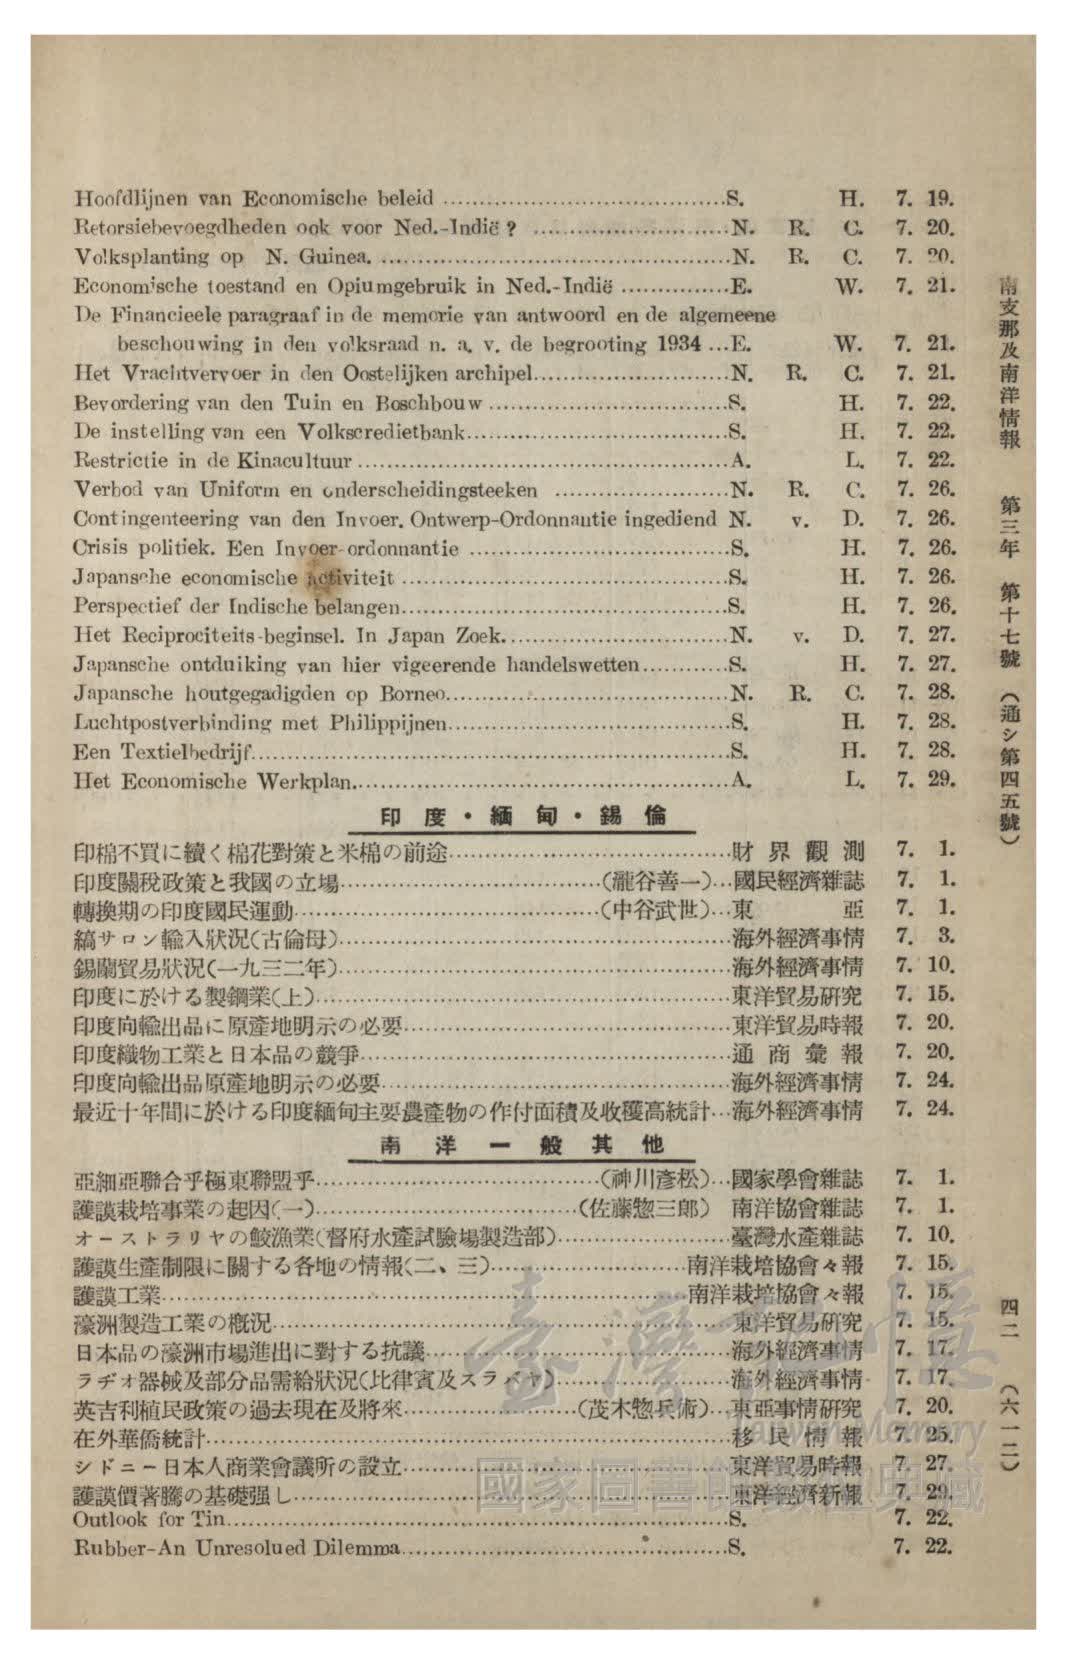 Hoofdlijnen van Economische beleid ......S. H. 7. 19.
Retorsiebevoegdheden ook voor Ned.-Indië ? ......N. R. C. 7. 20.
Volksplanting op N. Guinea. ......N. R. C. 7. 20.
Economische toestand en Opiumgebruik in Ned.-Indië ......E. W. 7. 21.
De Financieele paragraaf in de memorie van antwoord en de algemeene
beschouwing in den volksraad n. a. v. de begrooting 1934 ...E. W. 7. 21.
Het Vrachtvervoer in den Oostelijken archipel......N. R. C. 7. 21.
Bevordering van den Tuin en Boschbouw ......S. H. 7. 22.
De instelling van een Volkscredietbank......S. H. 7. 22.
Restrictie in de Kinacultuur ......A. L. 7. 22.
Verbod van Uniform en onderscheidingsteeken ......N. R. C. 7. 26.
Contingenteering van den Invoer. Ontwerp-Ordonnantie ingediend N. v. D. 7. 26.
Crisis politiek. Een Invoer-ordonnantie ......S. H. 7. 26.
Japansche economische activiteit ......S. H. 7. 26.
Perspectief der Indische belangen......S. H. 7. 26.
Het Reciprociteits-beginsel. In Japan Zoek.......N. v. D. 7. 27.
Japansche ontduiking van hier vigeerende handelswetten......S. H. 7. 27.
Japansche houtgegadigden op Borneo......N. R. C. 7. 28.
Luchtpostverbinding met Philippijnen......S. H. 7. 28.
Een Textielbedrijf......S. H. 7. 28.
Het Economische Werkplan.......A. L. 7. 29.
印度・緬甸・錫倫
印棉不買に續く棉花對策と米棉の前途……財界觀測 7. 1.
印度關稅政策と我國の立場……(瀧谷善一)…國民經濟雜誌 7. 1.
轉換期の印度國民運動……(中谷武世)…東亞 7. 1.
縞サロン輸入狀況(古倫母)……海外經濟事情 7. 3.
錫蘭貿易狀況(一九三二年)……海外經濟事情 7. 10.
印度に於ける製鋼業(上)……東洋貿易硏究 7. 15.
印度向輸出品に原產地明示の必要……東洋貿易時報 7. 20.
印度織物工業と日本品の競爭……通商彙報 7. 20.
印度向輸出品原產地明示の必要……海外經濟事情 7. 24.
最近十年間に於ける印度緬甸主要農產物の作付面積及收穫高統計…海外經濟事情 7. 24.
南洋一般其他
亞細亞聯合乎極東聯盟乎……(神川彥松)…國家學會雜誌 7. 1.
護謨栽培事業の起因(一)……(佐藤惣三郞) 南洋協會雜誌 7. 1.
オーストラリヤの鮫漁業(督府水產試驗場製造部)……臺灣水產雜誌 7. 10.
護謨生產制限に關する各地の情報(二、三)……南洋栽培協會々報 7. 15.
護謨工業……南洋栽培協會々報 7. 15.
濠洲製造工業の槪況……東洋貿易硏究 7. 15.
日本品の濠洲市場進出に對する抗議……海外經濟事情 7. 17.
ラヂオ器械及部分品需給狀況(比律賓及スラバヤ)……海外經濟事情 7. 17.
英吉利植民政策の過去現在及將來……(茂木惣兵衞)…東亞事情硏究 7. 20.
在外華僑統計……移民情報 7. 25.
シドニー日本人商業會議所の設立……東洋貿易時報 7. 27.
護謨價著騰の基礎强し……東洋經濟新報 7. 29.
Outlook for Tin......S. 7. 22.
Rubber-An Unresolued Dilemma......S. 7. 22.
南支那及南洋情報 第三年 第十七號 (通シ第四五號)
四二 (六一二)
臺灣記憶
Taiwan Memory
國家圖書館數位典藏